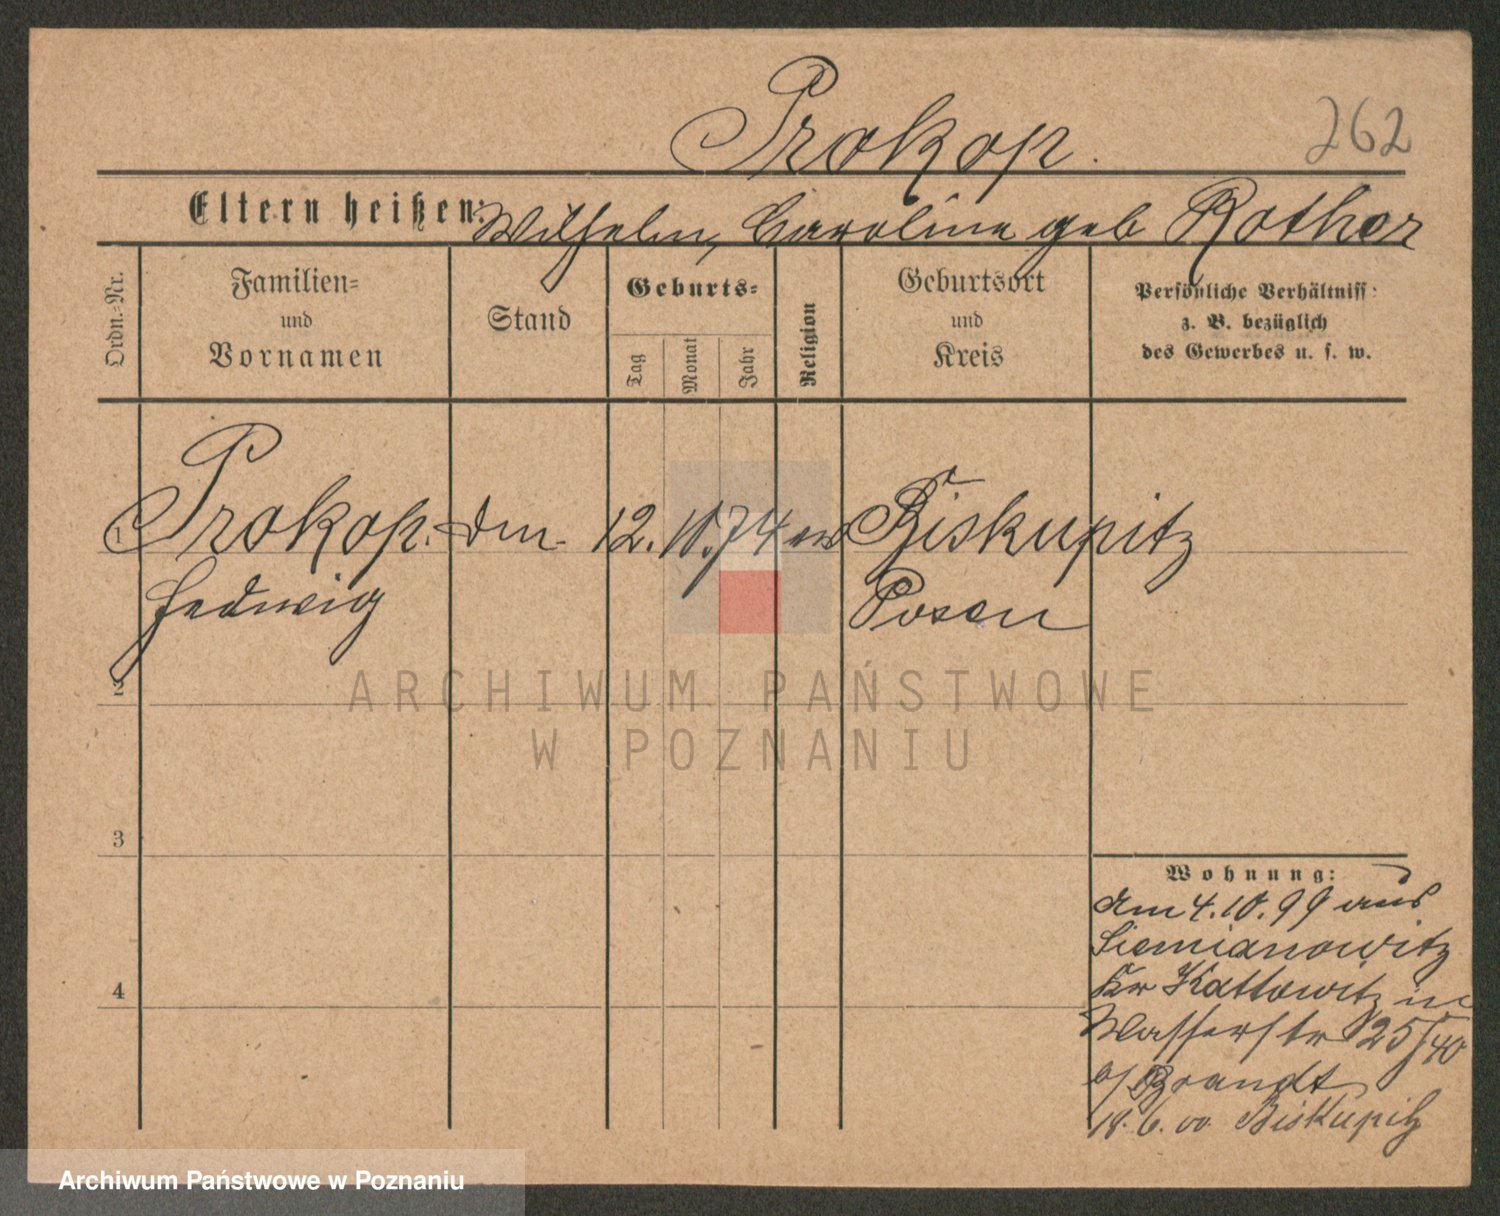 Prokop. 262
Eltern heißen: Wilhelm, Caroline geb Rother
Ordn.-Nr.
Familien-
und
Vornamen
Stand
Geburts-
Tag
Monat
Jahr
Religion
Geburtsort
und
Kreis
Persönliche Verhältniss:
z. B. bezüglich
des Gewerbes u. s. w.
1 Prokop. 12. 10. 74 ev Biskupitz
Hedwig Posen
2
ARCHIWUM PAŃSTWOWE
W POZNANIU
3
Wohnung:
Am 4.10.99 aus
Siemianowitz
Kr Kattowitz in
Wasserstr 25/40
b/ Brandt
18. 6. 00. Biskupitz
4
Archiwum Państwowe w Poznaniu